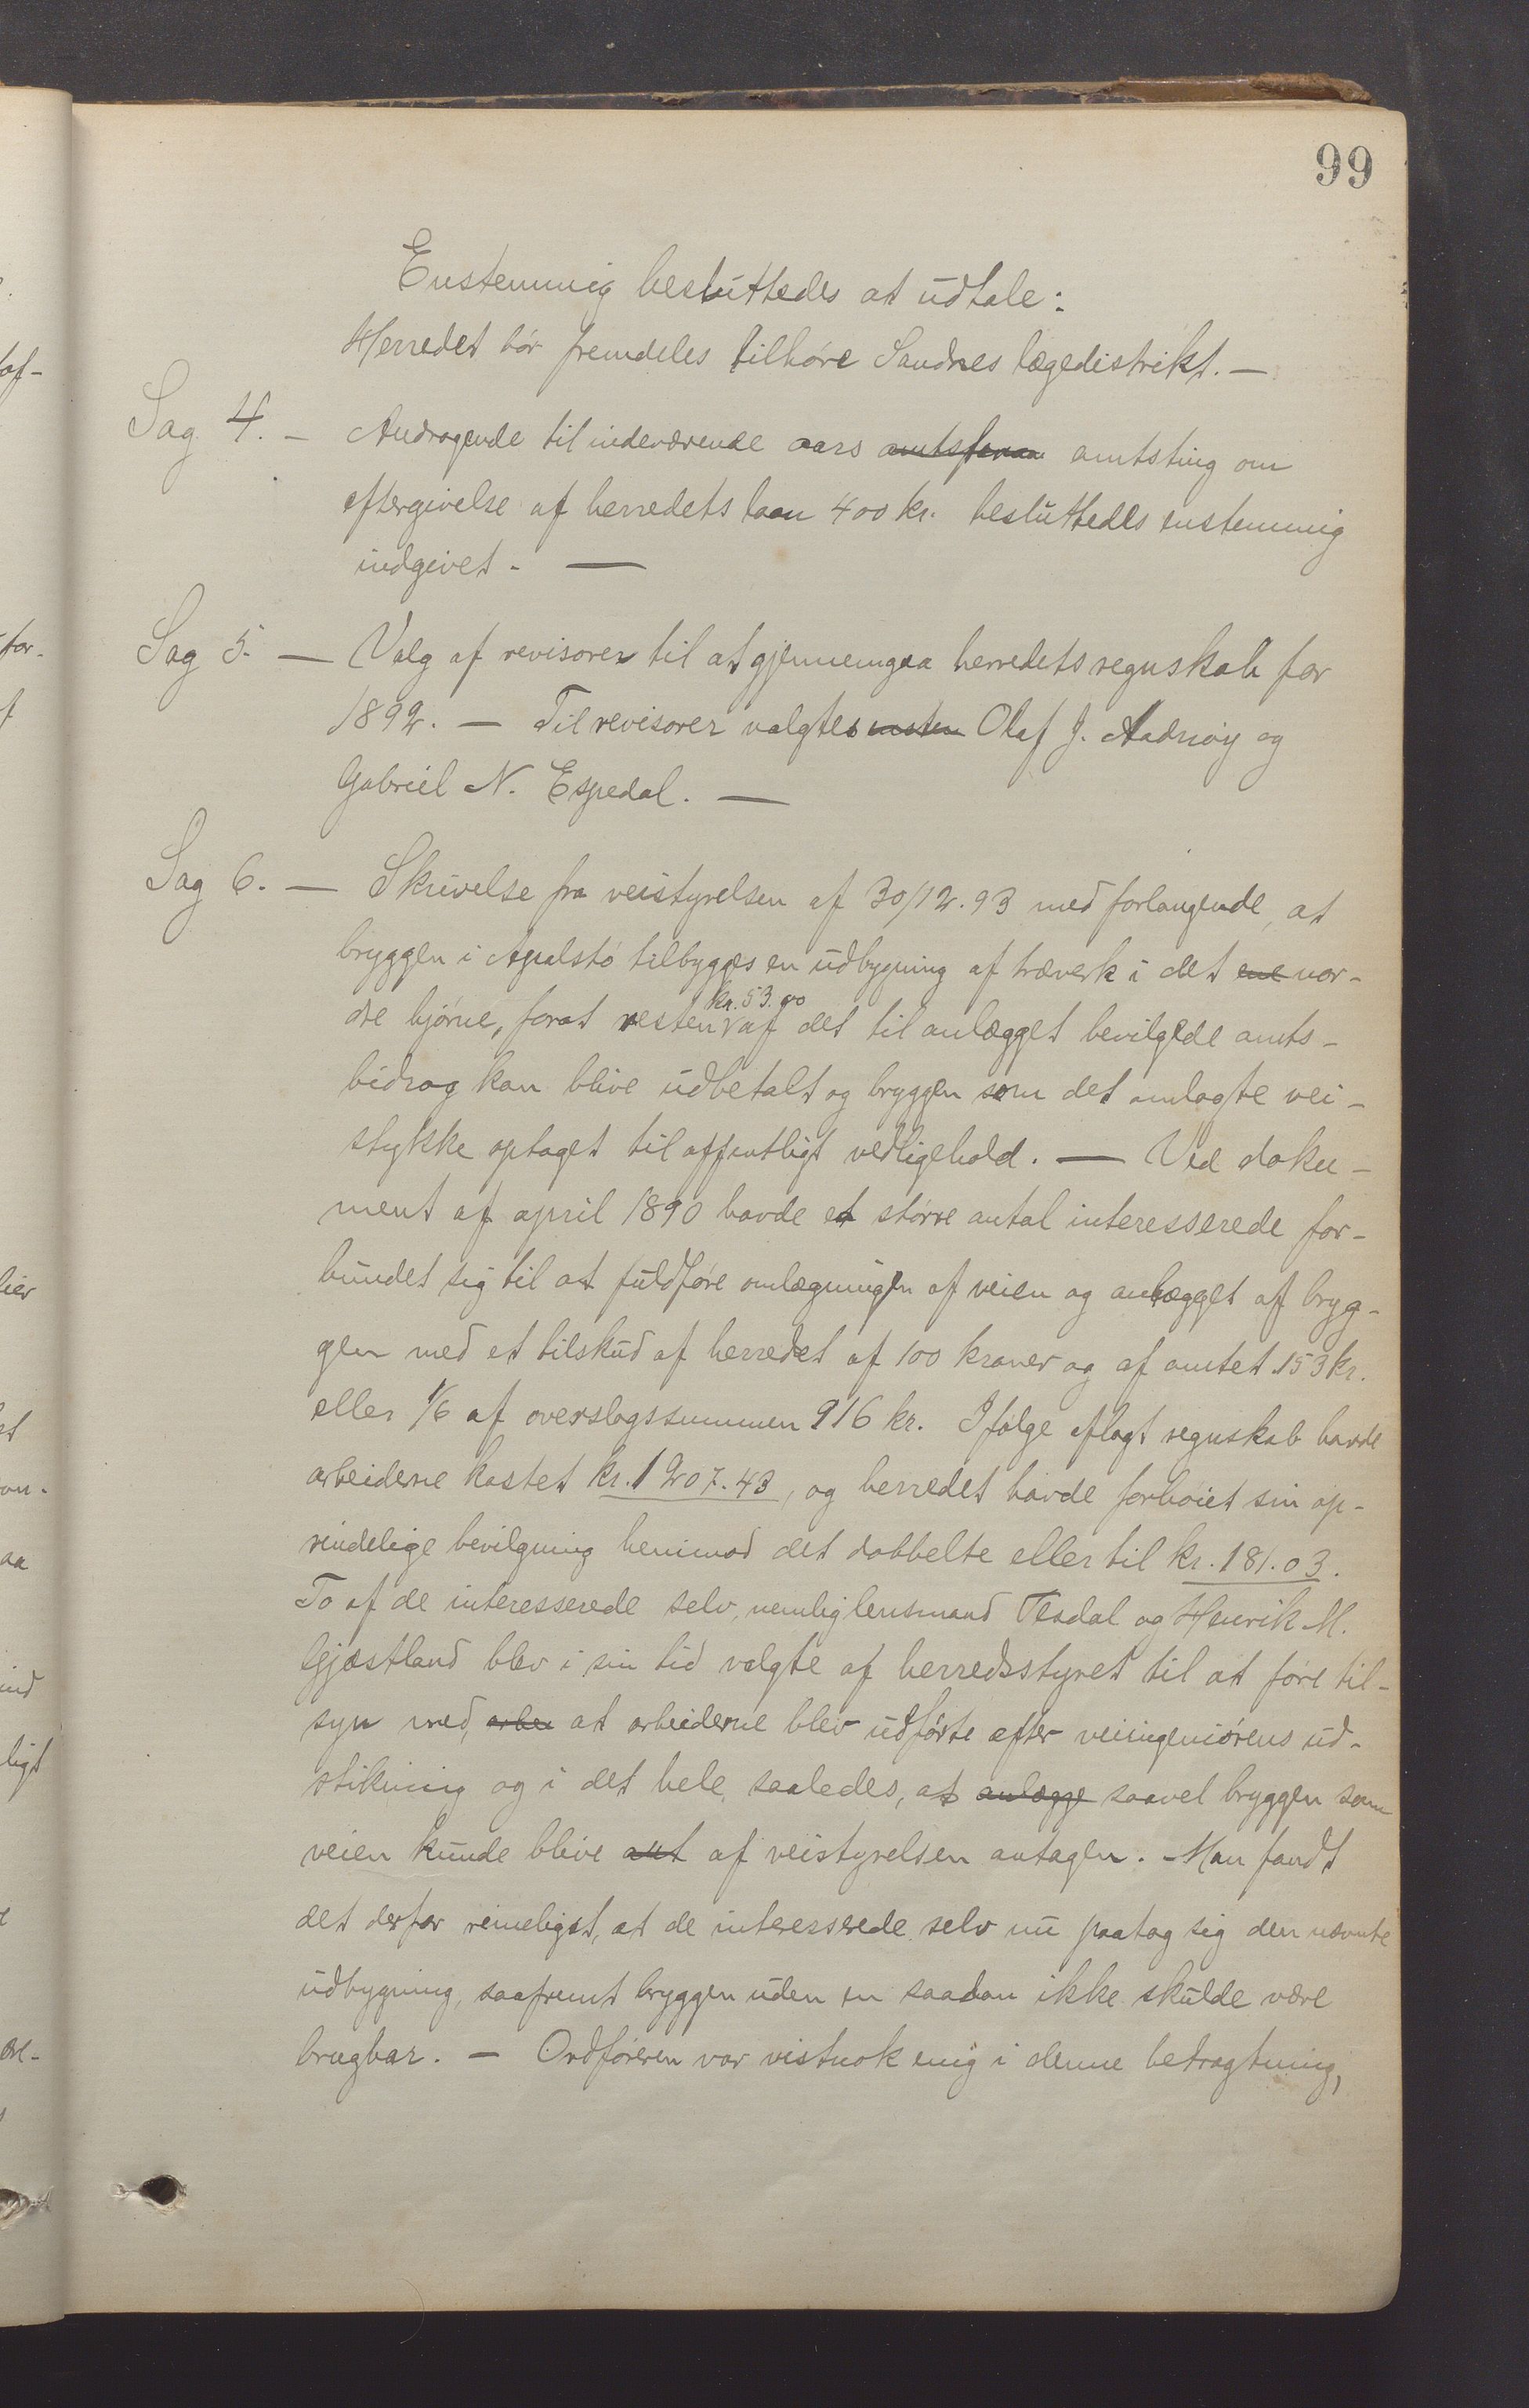 99
Enstemmig besluttedes at udtale:
Herredet bør fremdeles tilhøre Sandnes lægedistrikt. —
Sag 4. — Andragende til indeværende aars amtsforma amtsting om
eftergivelse af herredets laan 400 kr. besluttedes enstemmig
indgivet. —
Sag 5. — Valg af revisorer til at gjennemgaa herredets regnskab for
1892. — Til revisorer valgtes ensten Olaf J. Aadnøy og
Gabriel N. Espedal. —
Sag 6. — Skrivelse fra veistyrelsen af 30/12.93 med forlangende, at
bryggen i Apalstø tilbygges en udbygning af træverk i det ene nor-
dre hjørne, forat resten kr. 53.00 af det til anlægget bevilgede amts-
bidrag kan blive udbetalt og bryggen som det omlagte vei-
stykke optaget til offentligt vedligehold. — Ved doku-
ment af april 1890 havde et større antal interesserede for-
bundet sig til at fuldføre omlægningen af veien og anlægget af bryg-
gen med et tilskud af herredet af 100 kroner og af amtet 153 kr.
eller 1/6 af overslagssummen 916 kr. Ifølge aflagt regnskab havde
arbeiderne kostet kr. 1207.43, og herredet havde forhøiet sin op-
rindelige bevilgning henimod det dobbelte eller til kr. 181.03.
To af de interesserede selv, nemlig lensmand Tesdal og Henrik M.
Gjæstland blev i sin tid valgte af herredsstyret til at føre til-
syn med, arbei at arbeiderne blev udførte efter veiingeniørens ud-
stikning og i det hele saaledes, at anlægge saavel bryggen som
veien kunde blive ant af veistyrelsen antagen. Man fandt
det derfor rimeligst, at de interesserede selv nu paatog sig den nævnte
udbygning, saafremt bryggen uden en saadan ikke skulde være
brugbar. — Ordføreren var vistnok enig i denne betragtning,